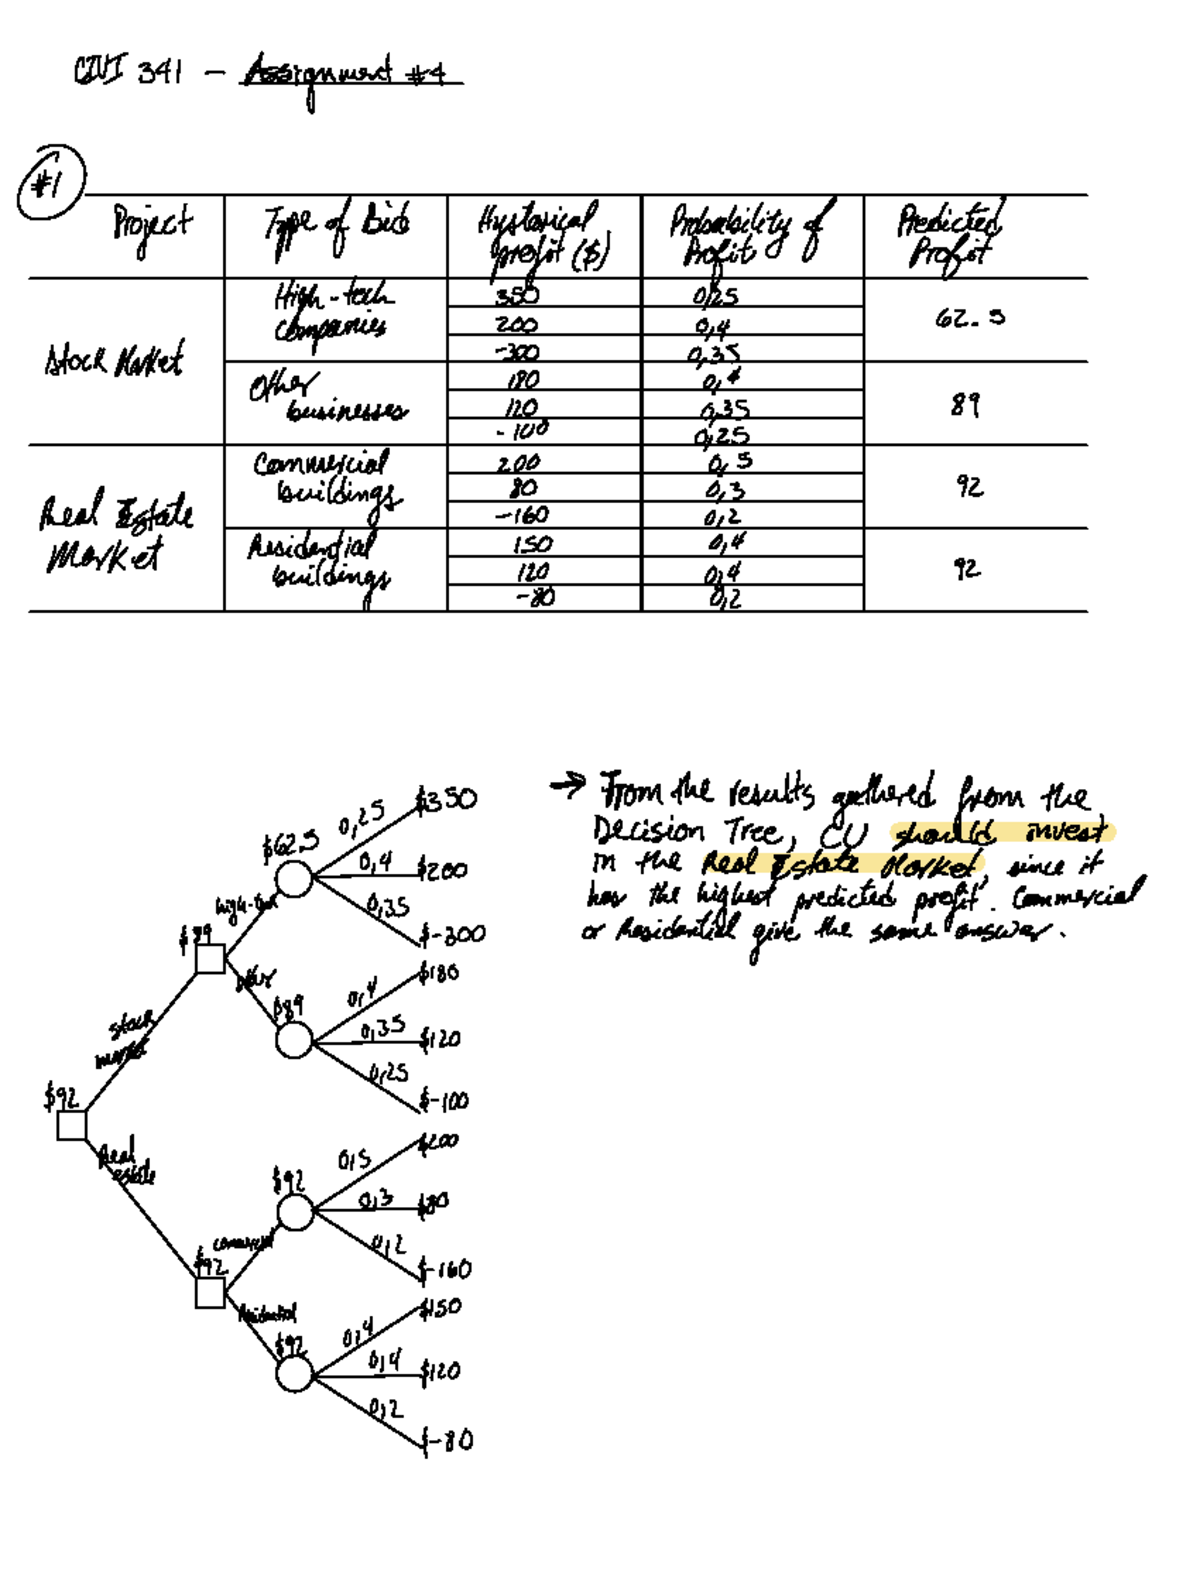 CIVI 341 - Assignment #4
#1
Project Type of Bid Hystorical profit ($) Probability of Profit Predicted Profit
Stock Market
High-tech companies
350 0,25
200 0,4
-300 0,35
62.5
Other businesses
180 0,4
120 0,35
-100 0,25
89
Real Estate Market
Commercial buildings
200 0,5
80 0,3
-160 0,2
92
Residential buildings
150 0,4
120 0,4
-80 0,2
92
→ From the results gathered from the
Decision Tree, CU should invest
in the Real Estate Market, since it
has the highest predicted profit. Commercial
or Residential give the same answer.
$92
stock market
$89
high-tech
$62.5
0,25 $350
0,4 $200
0,35 $-300
other
$89
0,4 $180
0,35 $120
0,25 $-100
Real estate
$92
commercial
$92
0,5 $200
0,3 $80
0,2 $-160
Residential
$92
0,4 $150
0,4 $120
0,2 $-80